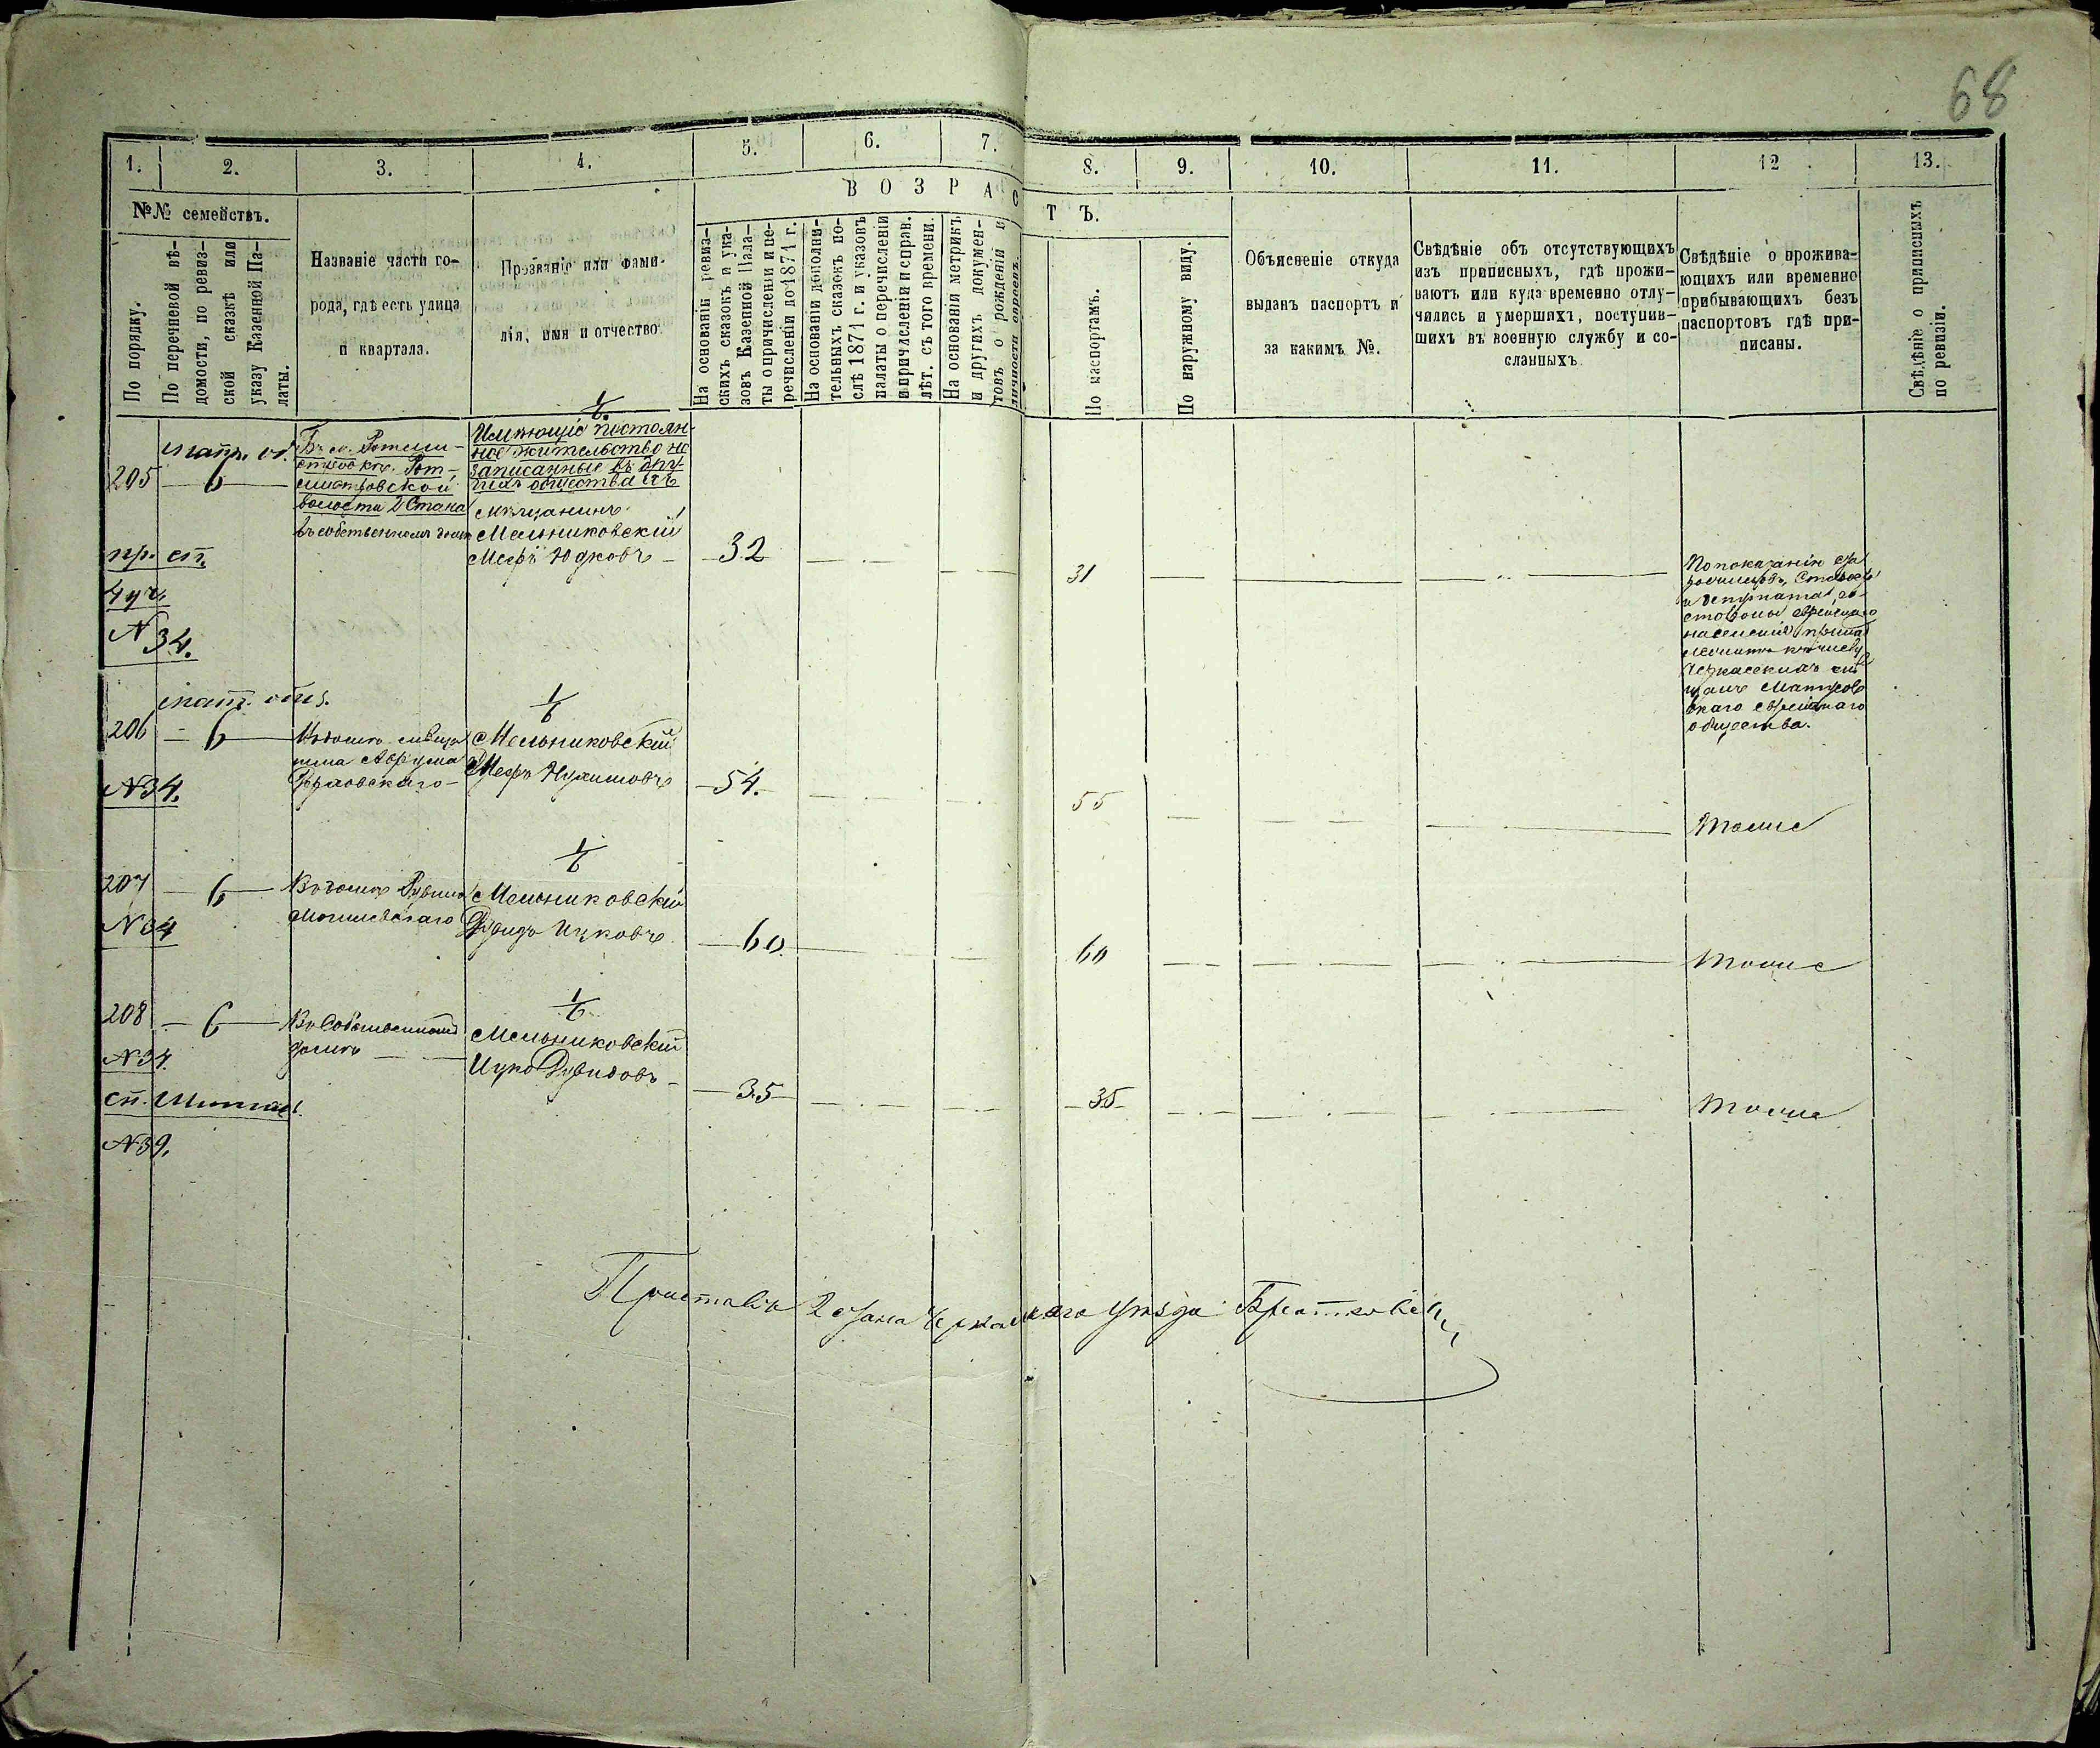 68
1. 2. 3. 4. 5. 6. 7. 8. 9. 10. 11. 12 13.
№№ семействъ.
По порядку.
По перечневой вѣ-
домости, по ревиз-
ской сказкѣ или
указу Казенной Па-
латы.
Названіе части го-
рода, гдѣ есть улица
и квартала.
Прозваніе или фами-
лія, имя и отчество.
ВОЗРАСТЪ.
На основаніи ревиз-
скихъ сказокъ и ука-
зовъ Казенной Пала-
ты о причисленіи и пе-
речисленіи до 1871 г.
На основаніи дополни-
тельныхъ сказокъ по-
слѣ 1871 г. и указовъ
палаты о перечисленіи
и причисленіи и справ.
лѣт. съ того времени.
На основаніи метрикъ
и другихъ докумен-
товъ о рожденіи и
личности евреевъ.
По паспортамъ.
По наружному виду.
Объясненіе откуда
выданъ паспортъ и
за какимъ №.
Свѣдѣніе объ отсутствующихъ
изъ приписныхъ, гдѣ прожи-
ваютъ или куда временно отлу-
чились и умершихъ, поступив-
шихъ въ военную службу и со-
сланныхъ
Свѣдѣніе о прожива-
ющихъ или временно
прибывающихъ безъ
паспортовъ гдѣ при-
писаны.
Свѣдѣніе о приписныхъ
по ревизіи.
1/6.
205 — 6 —
Въ м. Ротми-
стровкѣ Рот-
мистровской
волости 2 Стана
въ собственномъ домѣ
Имѣющіе постоян-
ное жительство не
записанные въ дру-
гихъ обществахъ
Мѣщанинъ
Мельниковскій
Мееръ Юдковъ — 32
31
По показанію
и депутата
еврейскаго
населенія
Черкасскихъ мѣ
щанъ
еврейскаго
общества.
пр. сп.
4 уч.
N 34.
1/6
206 — 6 —
Мельниковскій
Мееръ Нухимовъ — 54.
55
Тоже
N 34.
1/6
207 — 6 —
Мельниковскій
Дувидъ Ицковъ — 60.
60
Тоже
N 34
1/6
208 — 6 —
Въ Собственномъ
домѣ
Мельниковскій
Ицко Дувидовъ — 35
35
Тоже
N 34.
N 39.
Приставъ 2 стана Черкасскаго уѣзда